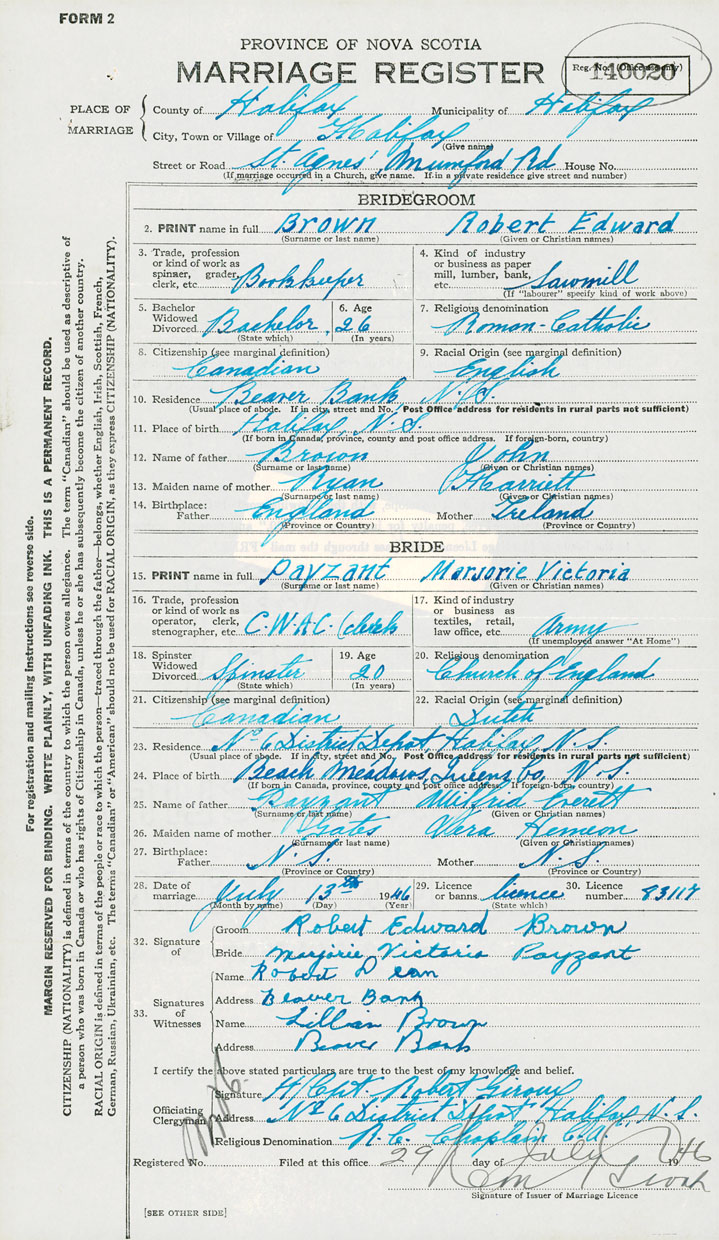 FORM 2
PROVINCE OF NOVA SCOTIA
MARRIAGE REGISTER
Reg. No. (Office use only)
140020
PLACE OF MARRIAGE
County of Halifax Municipality of Halifax
City, Town or Village of Halifax
(Give name)
Street or Road St. Agnes' Mumford Rd House No.
(If marriage occurred in a Church, give name. If in a private residence give street and number)
BRIDEGROOM
2. PRINT name in full Brown Robert Edward
(Surname or last name) (Given or Christian names)
3. Trade, profession or kind of work as spinner, grader, clerk, etc. Bookkeeper
4. Kind of industry or business as paper mill, lumber, bank, etc. Sawmill
(If "labourer" specify kind of work above)
5. Bachelor Widowed Divorced Bachelor
(State which)
6. Age 26
(In years)
7. Religious denomination
Roman-Catholic
8. Citizenship (see marginal definition)
Canadian
9. Racial Origin (see marginal definition)
English
10. Residence Beaver Bank N.S.
(Usual place of abode. If in city, street and No. Post Office address for residents in rural parts not sufficient)
11. Place of birth Halifax, N.S.
(If born in Canada, province, county and post office address. If foreign-born, country)
12. Name of father Brown John
(Surname or last name) (Given or Christian names)
13. Maiden name of mother Ryan Harriett
(Surname or last name) (Given or Christian names)
14. Birthplace: Father England Mother Ireland
(Province or Country) (Province or Country)
BRIDE
15. PRINT name in full Payzant Marjorie Victoria
(Surname or last name) (Given or Christian names)
16. Trade, profession or kind of work as operator, clerk, stenographer, etc. C.W.A.C. (clerk
17. Kind of industry or business as textiles, retail, law office, etc. Army
(If unemployed answer "At Home")
18. Spinster Widowed Divorced Spinster
(State which)
19. Age 20
(In years)
20. Religious denomination
Church of England
21. Citizenship (see marginal definition)
Canadian
22. Racial Origin (see marginal definition)
Dutch
23. Residence No 6 District Depot Halifax, N.S.
(Usual place of abode. If in city, street and No. Post Office address for residents in rural parts not sufficient)
24. Place of birth Beach Meadows, Queens Co, N.S.
(If born in Canada, province, county and post office address. If foreign-born, country)
25. Name of father Payzant Wilfrid Everett
(Surname or last name) (Given or Christian names)
26. Maiden name of mother Gates Vera Hemeon
(Surname or last name) (Given or Christian names)
27. Birthplace: Father N.S. Mother N.S.
(Province or Country) (Province or Country)
28. Date of marriage July 13th 1946
(Month by name) (Day) (Year)
29. Licence or banns licence
(State which)
30. Licence number 83117
32. Signature of
Groom Robert Edward Brown
Bride Marjorie Victoria Payzant
33. Signatures of Witnesses
Name Robert Dean
Address Beaver Bank
Name Lillian Brown
Address Beaver Bank
I certify the above stated particulars are true to the best of my knowledge and belief.
Officiating Clergyman
Signature H/Capt. Robert Giroux
Address No 6 District Depot Halifax, N.S.
Religious Denomination R.C. Chaplain C.A.
Registered No. Filed at this office 29 day of July 1946
Signature of Issuer of Marriage Licence
[SEE OTHER SIDE]
For registration and mailing instructions see reverse side.
MARGIN RESERVED FOR BINDING. WRITE PLAINLY, WITH UNFADING INK. THIS IS A PERMANENT RECORD.
CITIZENSHIP (NATIONALITY) is defined in terms of the country to which the person owes allegiance. The term "Canadian" should be used as descriptive of
a person who was born in Canada or who has rights of Citizenship in Canada, unless he or she has subsequently become the citizen of another country.
RACIAL ORIGIN is defined in terms of the people or race to which the person—traced through the father—belongs, whether English, Irish, Scottish, French,
German, Russian, Ukrainian, etc. The terms "Canadian" or "American" should not be used for RACIAL ORIGIN, as they express CITIZENSHIP (NATIONALITY).